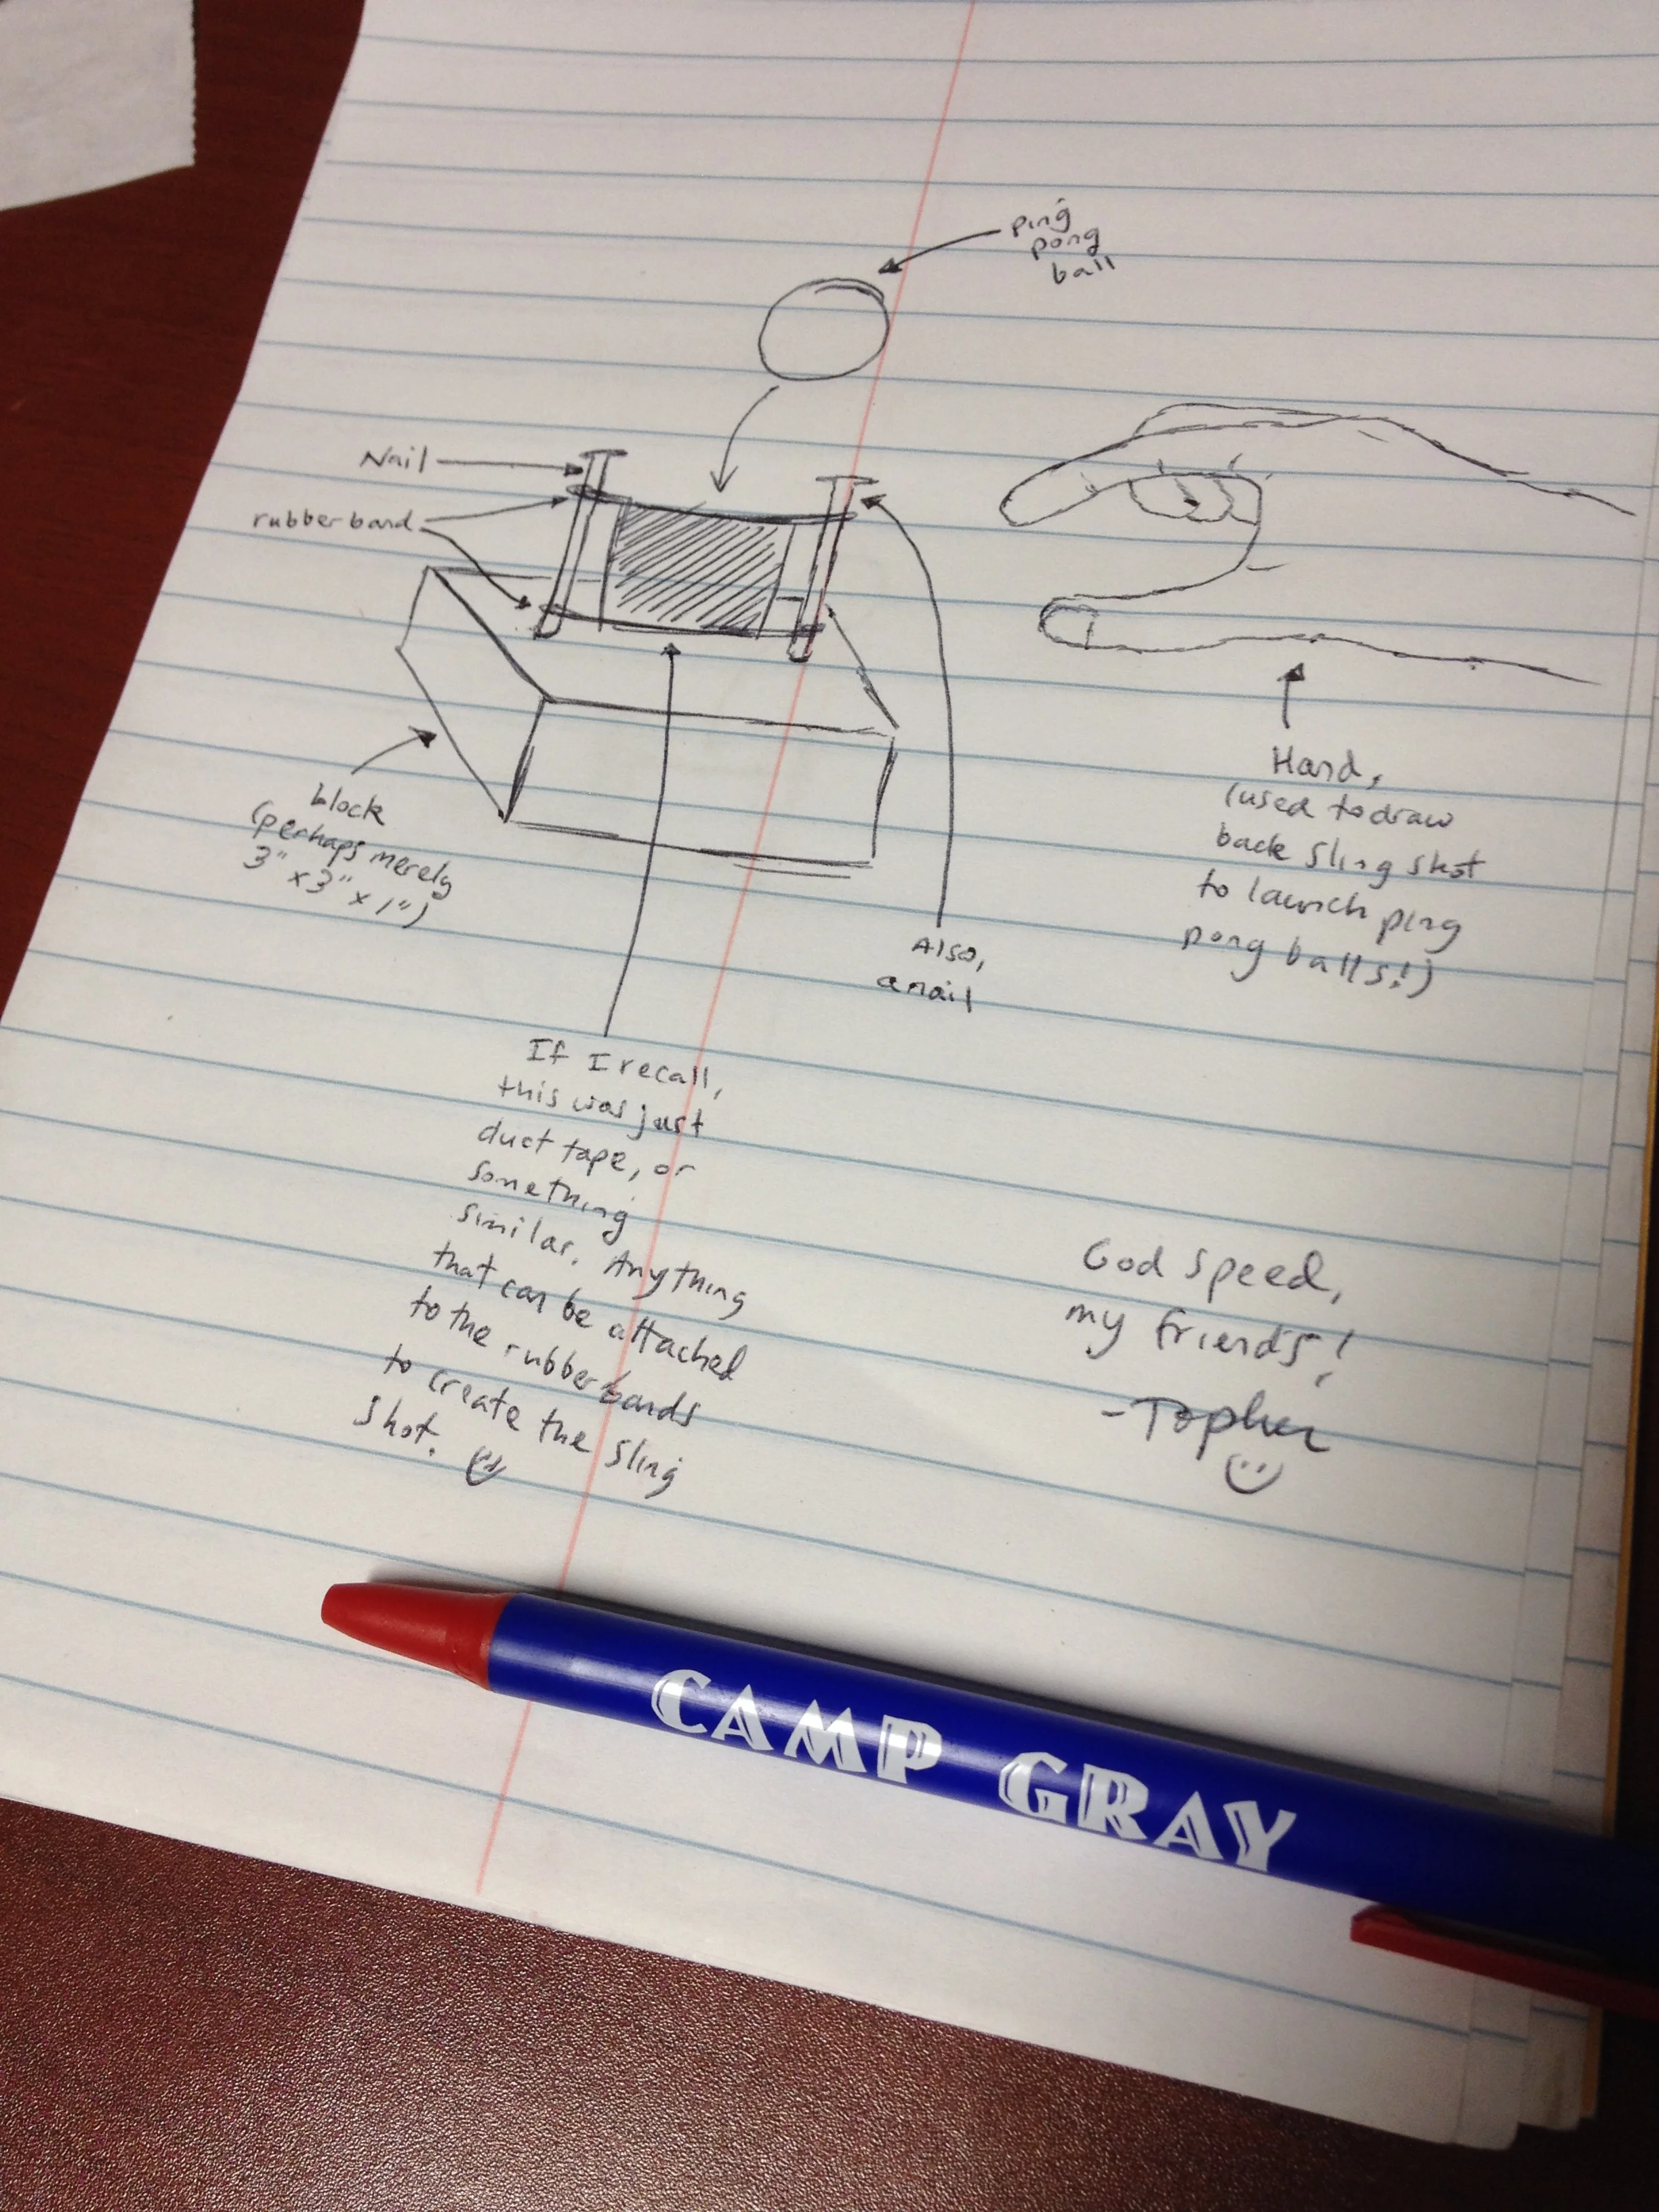 ping
pong
ball
Nail
rubberband
block
(perhaps merely
3" x 3" x 1")
Also,
a nail
Hand,
(used to draw
back sling shot
to launch ping
pong balls!)
If I recall,
this was just
duct tape, or
something
similar. Anything
that can be attached
to the rubber bands
to create the sling
shot.
God speed,
my friends!
-Topher
CAMP GRAY